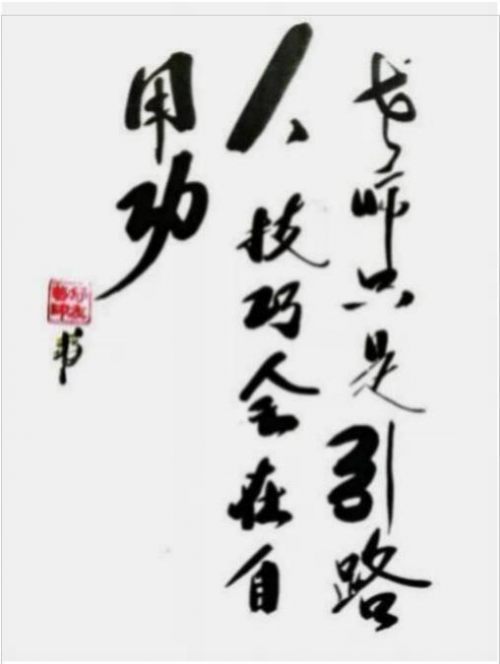 老师只是引路
人技巧全在自
用功
书